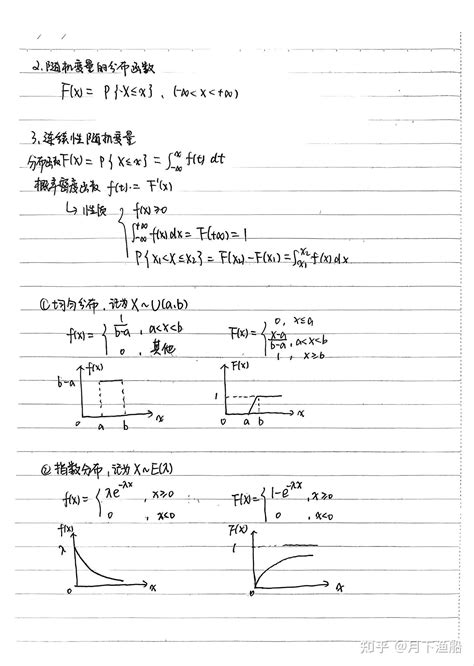 2.随机变量的分布函数
F(x) = P{X≤x}、(-∞<x<+∞)
3.连续性随机变量
分布函数F(x) = P{X≤x} = ∫_{-∞}^{x} f(t) dt
概率密度函数 f(t) = F'(x)
↳性质 { f(x)≥0
∫_{-∞}^{+∞} f(x)dx = F(+∞) = 1
P{x₁<X≤x₂} = F(x₂)-F(x₁) = ∫_{x₁}^{x₂} f(x)dx
①均匀分布,记为X~U(a,b)
f(x) = { 1/(b-a), a<x<b
0, 其他
F(x) = { 0, x≤a
(x-a)/(b-a), a<x<b
1, x≥b
f(x)
b-a
0 a b x
F(x)
1
0 a b x
②指数分布,记为X~E(λ)
f(x) = { λe^{-λx}, x≥0
0, x<0
F(x) = { 1-e^{-λx}, x≥0
0, x<0
f(x)
λ
0 x
F(x)
1
0 x
知乎 @月下渔船